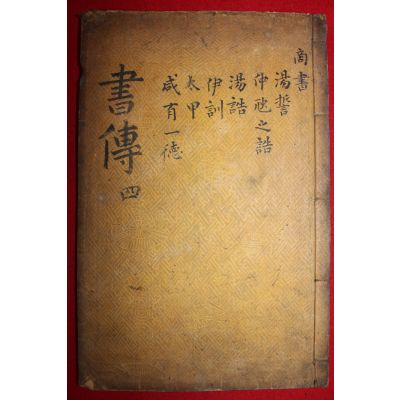 商書
湯誓
仲虺之誥
湯誥
伊訓
太甲
咸有一徳
書傳 四